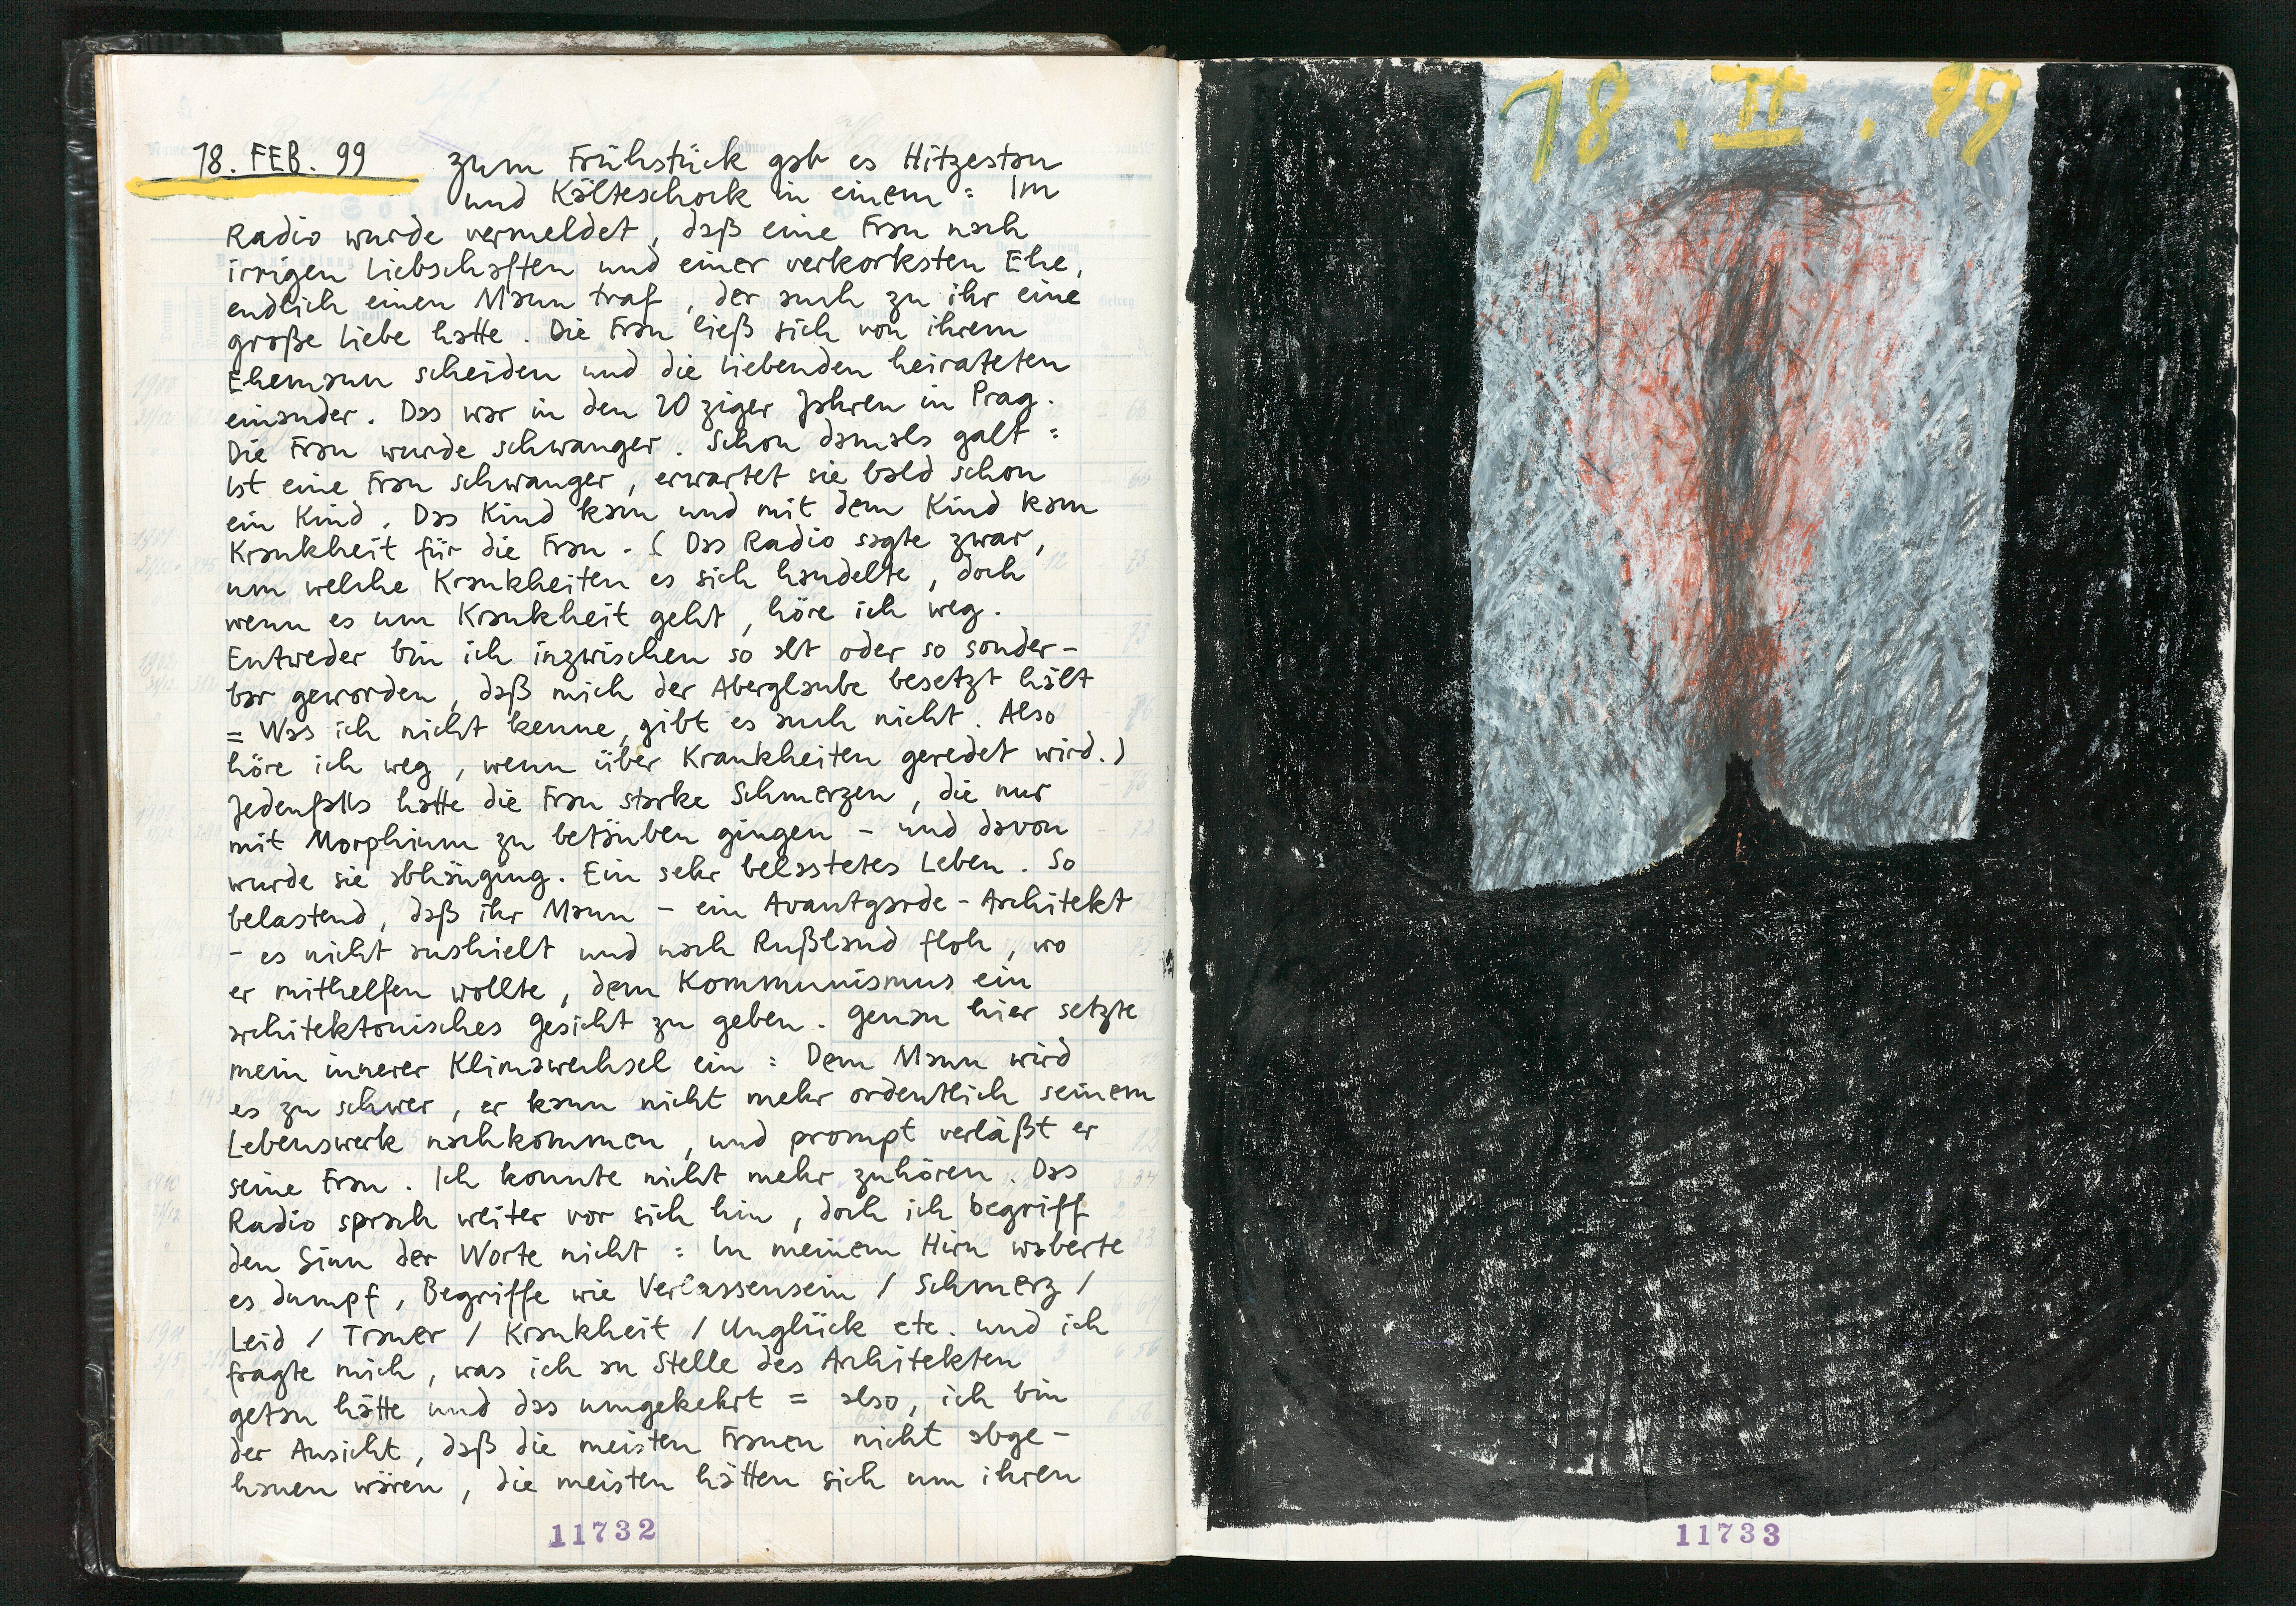 18. FEB. 99 zum Frühstück gab es Hitzestau
und Kälteschock in einem = Im
Radio wurde vermeldet, daß eine Frau nach
irrigen Liebschaften und einer verkorksten Ehe,
endlich einen Mann traf, der auch zu ihr eine
große Liebe hatte. Die Frau ließ sich von ihrem
Ehemann scheiden und die Liebenden heirateten
einander. Das war in den 20 ziger Jahren in Prag.
Die Frau wurde schwanger. Schon damals galt =
Ist eine Frau schwanger, erwartet sie bald schon
ein Kind. Das Kind kam und mit dem Kind kam
Krankheit für die Frau. (Das Radio sagte zwar,
um welche Krankheiten es sich handelte, doch
wenn es um Krankheit geht, höre ich weg.
Entweder bin ich inzwischen so alt oder so sonder-
bar geworden, daß mich der Aberglaube besetzt hält
= Was ich nicht kenne, gibt es auch nicht. Also
höre ich weg, wenn über Krankheiten geredet wird.)
Jedenfalls hatte die Frau starke Schmerzen, die nur
mit Morphium zu betäuben gingen - und davon
wurde sie abhängig. Ein sehr belastetes Leben. So
belastend, daß ihr Mann - ein Avantgarde-Architekt
- es nicht aushielt und nach Rußland floh, wo
er mithelfen wollte, dem Kommunismus ein
architektonisches Gesicht zu geben. Genau hier setzte
mein innerer Klimawechsel ein = Dem Mann wird
es zu schwer, er kann nicht mehr ordentlich seinem
Lebenswerk nachkommen, und prompt verläßt er
seine Frau. Ich konnte nicht mehr zuhören. Das
Radio sprach weiter vor sich hin, doch ich begriff
den Sinn der Worte nicht = In meinem Hirn waberte
es dumpf, Begriffe wie Verlassensein / Schmerz /
Leid / Trauer / Krankheit / Unglück etc. und ich
fragte mich, was ich an Stelle des Architekten
getan hätte und das umgekehrt = also, ich bin
der Ansicht, daß die meisten Frauen nicht abge-
hauen wären, die meisten hätten sich um ihren
11732
18. II. 99
11733